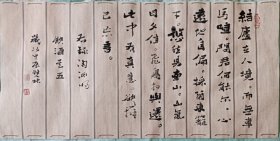 結廬在人境。而無車
馬喧。問君何能尔。心
遠地自偏。採菊東籬
下。悠然見南山。山氣
日夕佳。飛鳥相與還。
此中有真意。欲辨
已忘言。
右録陶渊明
飲酒其五